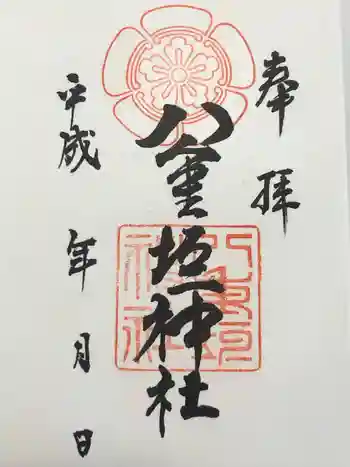 奉拝
八重垣神社
平成 年 月 日